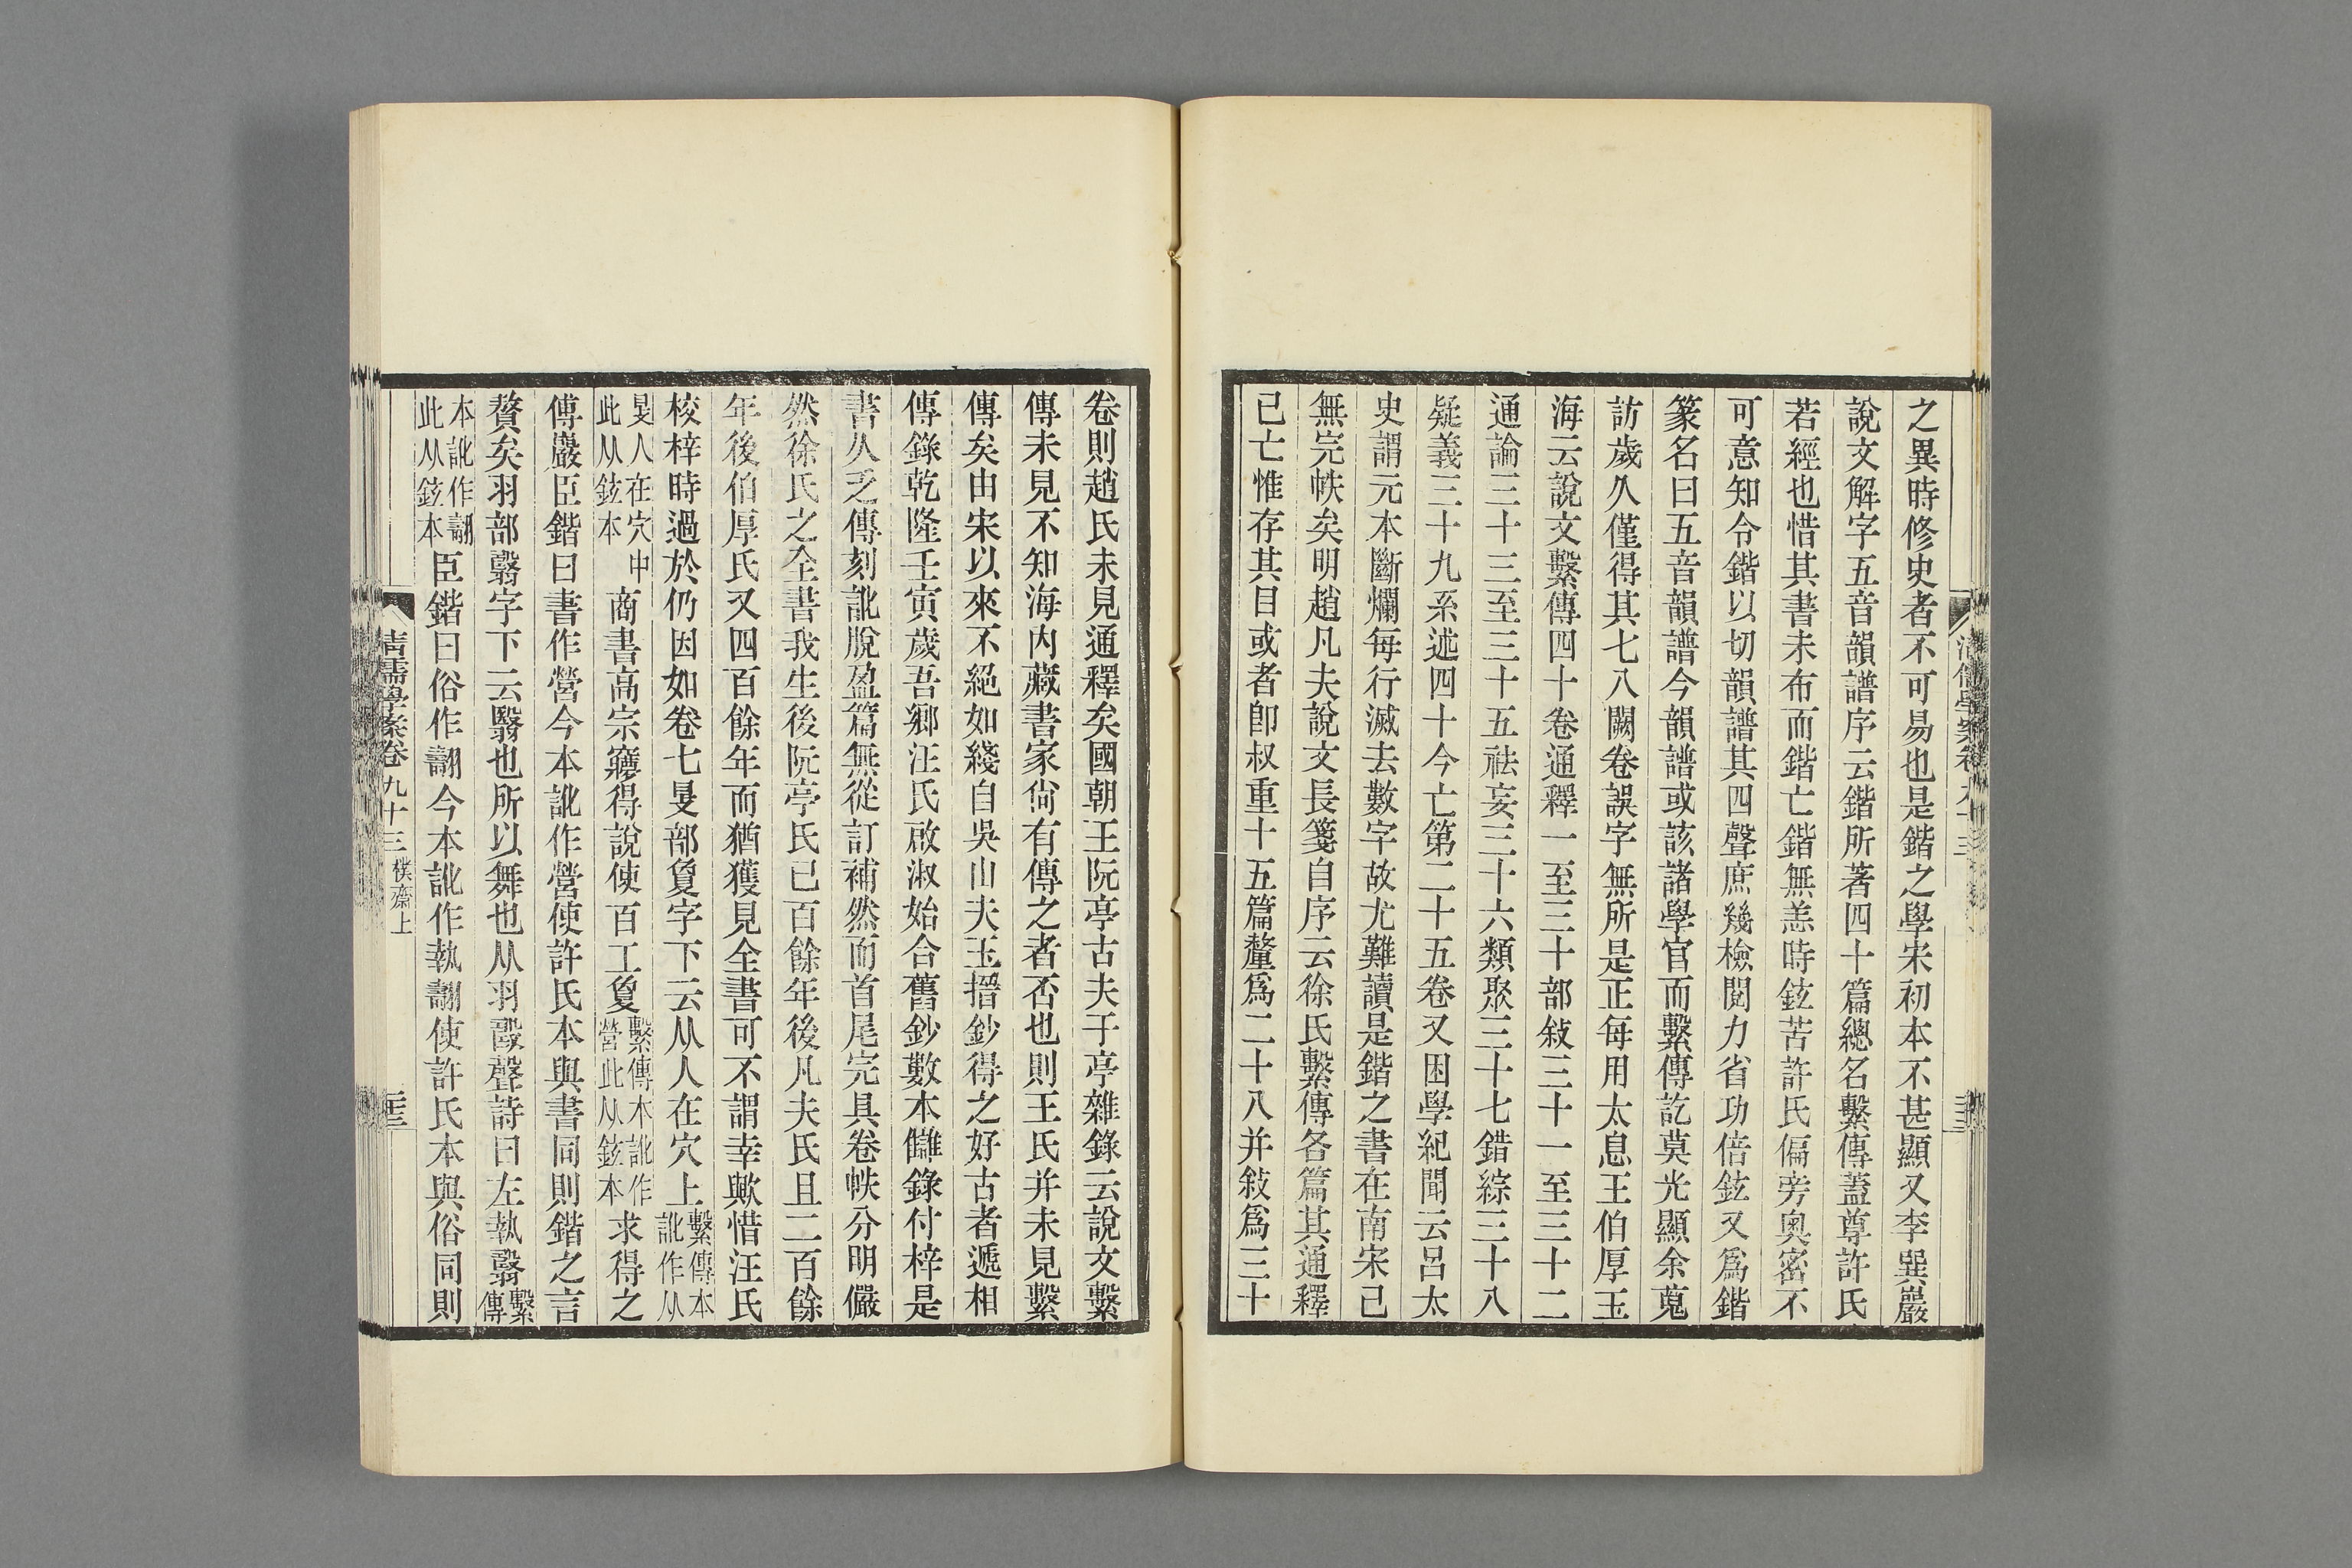 之異時修史者不可易也是鍇之學宋初本不甚顯又李巽巖
說文解字五音韻譜序云鍇所著四十篇總名繫傳蓋尊許氏
若經也惜其書未布而鍇亡鍇無恙時鉉苦許氏偏旁奧密不
可意知令鍇以切韻譜其四聲庶幾檢閱力省功倍鉉又爲鍇
篆名曰五音韻譜今韻譜或該諸學官而繫傳訖莫光顯余蒐
訪歲久僅得其七八闕卷誤字無所是正每用太息王伯厚玉
海云說文繫傳四十卷通釋一至三十部敍三十一至三十二
通論三十三至三十五祛妄三十六類聚三十七錯綜三十八
疑義三十九系述四十今亡第二十五卷又困學紀聞云呂太
史謂元本斷爛每行滅去數字故尤難讀是鍇之書在南宋已
無完帙矣明趙凡夫說文長箋自序云徐氏繫傳各篇其通釋
已亡惟存其目或者卽叔重十五篇釐爲二十八并敍爲三十
卷則趙氏未見通釋矣國朝王阮亭古夫于亭雜錄云說文繫
傳未見不知海內藏書家尙有傳之者否也則王氏并未見繫
傳矣由宋以來不絕如綫自吳山夫玉搢鈔得之好古者遞相
傳錄乾隆壬寅歲吾鄉汪氏啟淑始合舊鈔數本讎錄付梓是
書久乏傳刻訛脫盈篇無從訂補然而首尾完具卷帙分明儼
然徐氏之全書我生後阮亭氏已百餘年後凡夫氏且二百餘
年後伯厚氏又四百餘年而猶獲見全書可不謂幸歟惜汪氏
校梓時過於仍因如卷七𡕥部敻字下云从人在穴上繫傳本訛作从
𡕥人在穴中此从鉉本商書高宗㝱得說使百工敻繫傳本訛作營此从鉉本求得之
傅巖臣鍇曰書作營今本訛作營使許氏本與書同則鍇之言
贅矣羽部翳字下云翳也所以舞也从羽殹聲詩曰左執翳繫傳
本訛作翿此从鉉本臣鍇曰俗作翿今本訛作執翿使許氏本與俗同則
清儒學案卷九十三 樸齋上